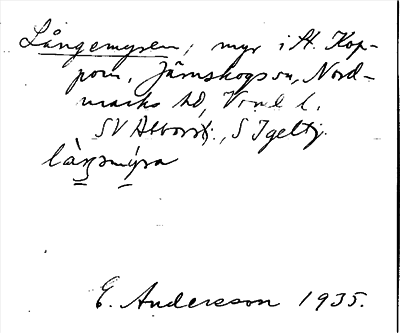 Långemyren; myr i St. Kop-
pom, Järnskogs sn, Nord-
marks hd, Vrml l.
SV Abborrtj., S Igeltj.
E. Andersson 1935.